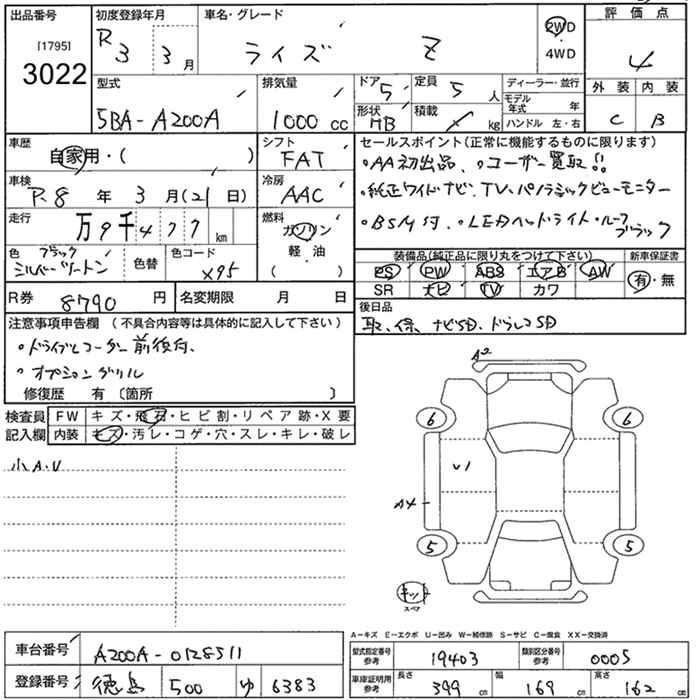 出品番号
[1795]
3022
初度登録年月
R 3 3月
車名・グレード
ライズ Z
2WD
・
4WD
評価点
4
外装 内装
C B
型式
5BA-A200A
排気量
1000 cc
ドア 5
定員 5 人
形状 HB
積載 kg
ディーラー・並行
モデル年式 年
ハンドル 左・右
車歴
自家用・( )
シフト
FAT
車検
R8 年 3 月(21 日)
冷房
AAC
走行
万 9 千 477 km
燃料
ガソリン
・
軽・油
( )
色 ブラック
シルバーツートン
色替
色コード
X95
R券 8790 円
名変期限 月 日
セールスポイント(正常に機能するものに限ります)
・AA初出品、・ユーザー買取!!
・純正ワイドナビ、TV、パノラミックビューモニター
・BSM付、・LEDヘッドライト・ルーフブラック
装備品(純正品に限り丸をつけて下さい)
新車保証書
PS PW ABS エアB AW
有・無
SR ナビ TV カワ
後日品
取、保、ナビSD、ドラレコSD
注意事項申告欄 (不具合内容等は具体的に記入して下さい)
・ドライブレコーダー前後付、
・オプショングリル
修復歴 有 〔箇所 〕
検査員
記入欄
FW キズ・飛石・ヒビ割・リペア跡・X要
内装 キズ・汚レ・コゲ・穴・スレ・キレ・破レ
小A・U
A2
6 6
U1
A4
5 5
キッ
スペア
A-キズ E-エクボ U-凹み W-補修跡 S-サビ C-腐食 XX-交換済
車台番号 A200A-0128511
登録番号 徳島 500 ゆ 6383
型式指定番号
参考
19403
類別区分番号
参考
0005
車庫証明用
参考
長さ 399 cm
幅 169 cm
高さ 162 cm